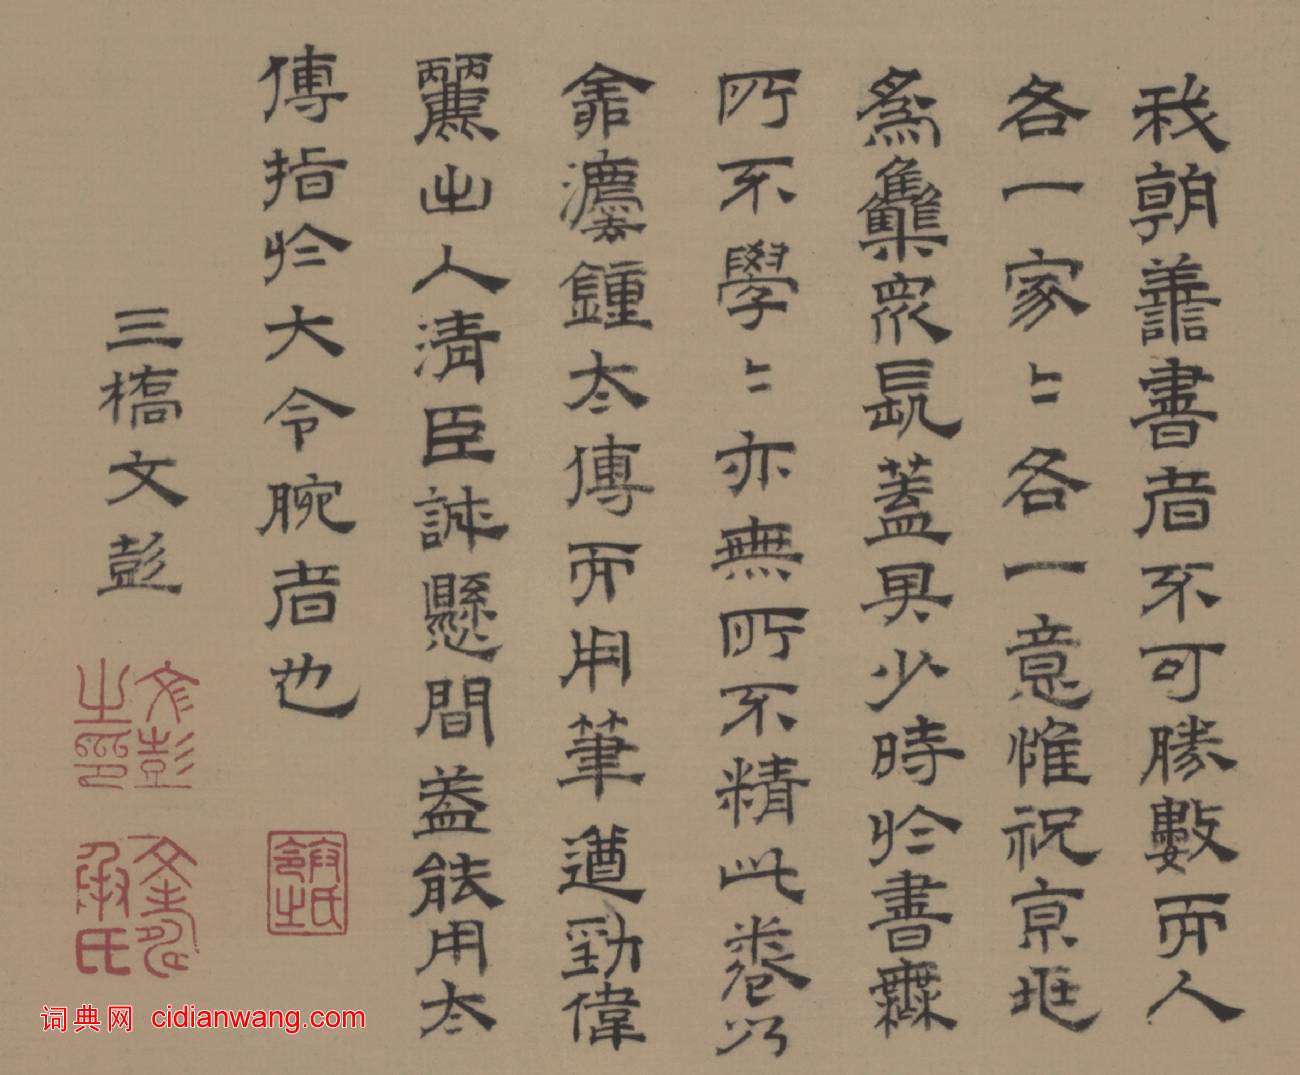 我朝善書者不可勝數而人
各一家〻各一意惟祝京兆
爲集衆長蓋其少時於書無
所不學〻亦無所不精此卷以
龠法鍾太傅而用筆遒勁偉
麗之人清臣誠懸間蓋能用太
傅指於大令腕者也
三橋文彭
文彭之印
文壽承氏
詞典网 cidianwang.com